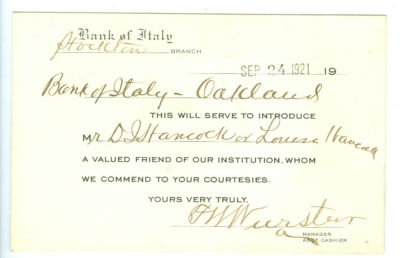 Bank of Italy
Stockton
BRANCH
SEP 24 1921 19
Bank of Italy - Oakland
THIS WILL SERVE TO INTRODUCE
Mr D I Hancock or Louisa Hancock
A VALUED FRIEND OF OUR INSTITUTION, WHOM
WE COMMEND TO YOUR COURTESIES.
YOURS VERY TRULY,
Wurster
MANAGER
ASST CASHIER